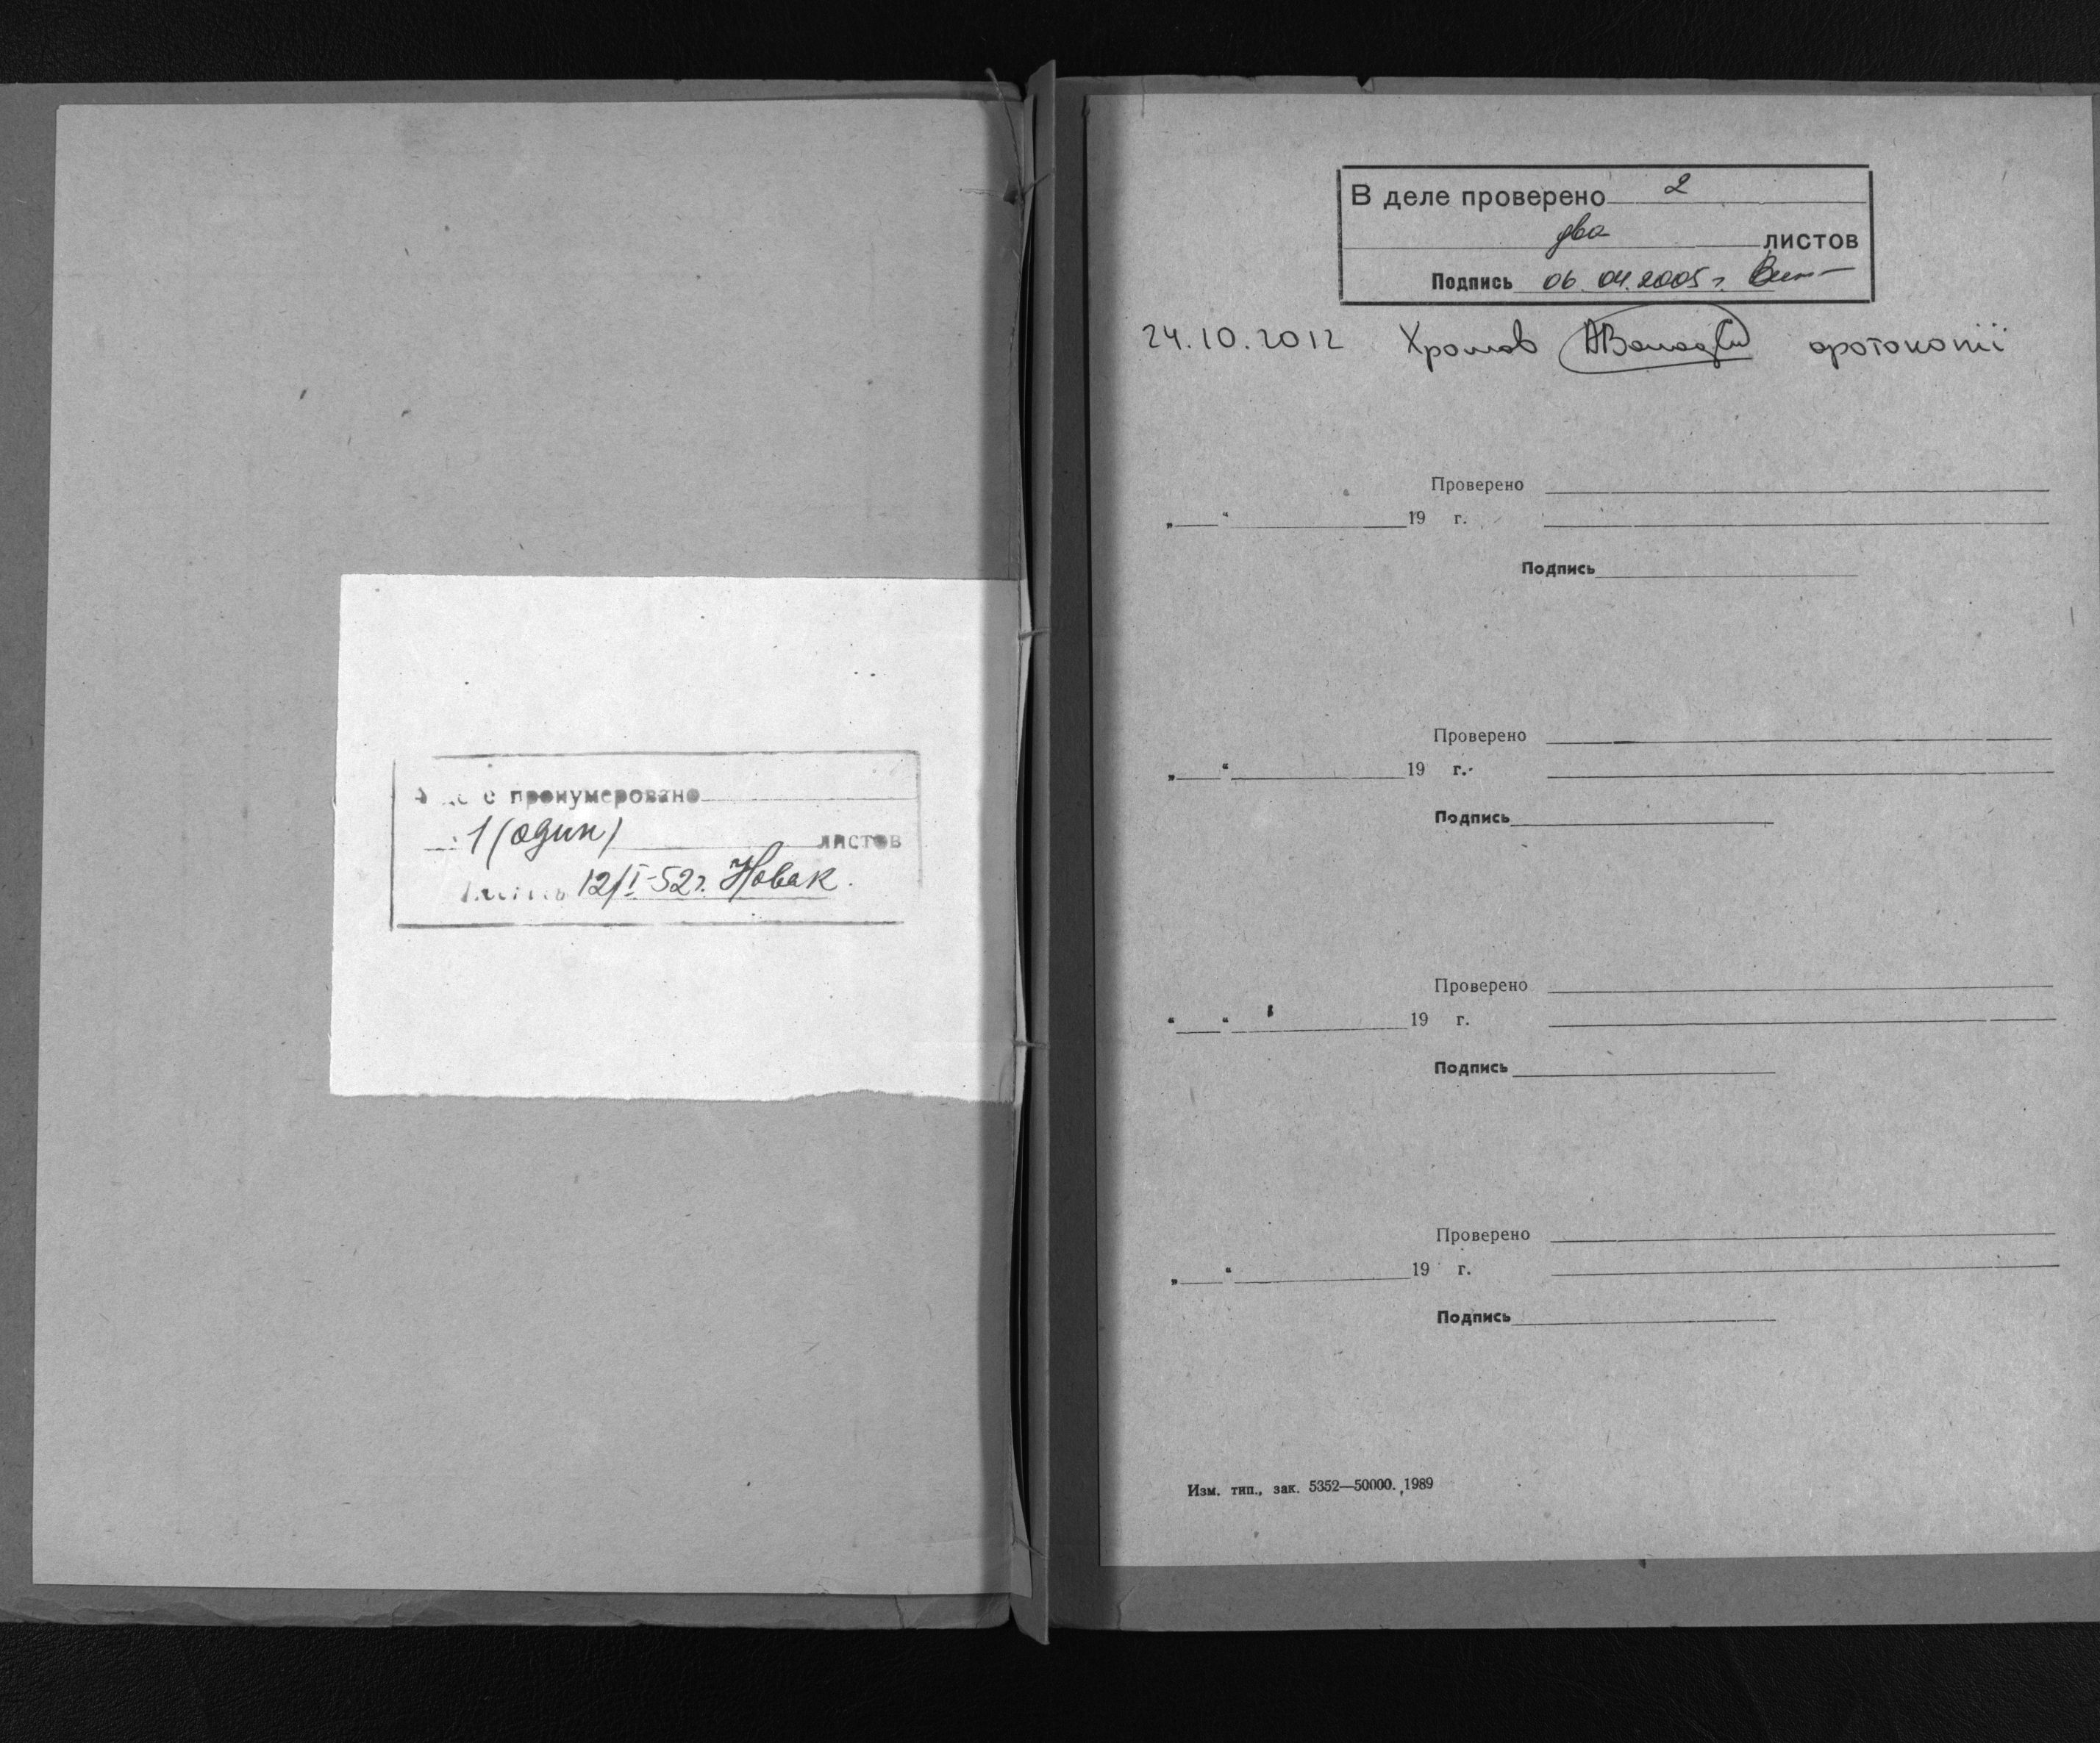 пронумеровано
1 (один) листов
12/I-52г. Новак.
В деле проверено 2
два листов
Подпись 06.04.2005 г.
24.10.2012 Хромов фотокопії
Проверено
„ “ 19 г.
Подпись
Проверено
„ “ 19 г.
Подпись
Проверено
“ “ 19 г.
Подпись
Проверено
„ “ 19 г.
Подпись
Изм. тип., зак. 5352—50000. 1989